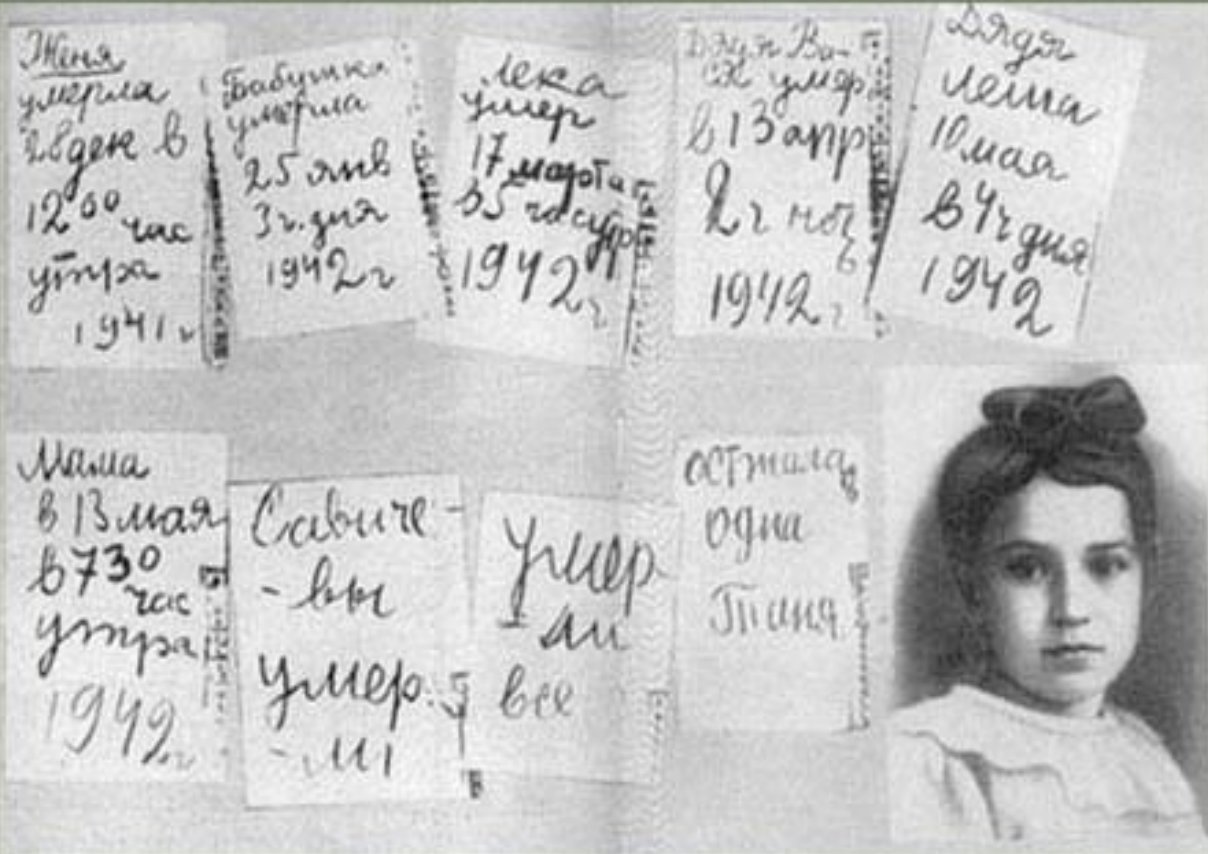 Женя
умерла
28 дек в
12 00 час
утра
1941 г
Бабушка
умерла
25 янв
3 ч. дня
1942 г
Лека
умер
17 марта
в 5 час утр
1942 г
Дядя Ва-
ся умер
в 13 апр
2 ч ночь
1942 г
Дядя
Леша
10 мая
в 4 ч дня
1942
Мама
в 13 мая
в 7 30
час
утра
1942 г
Савиче-
-вы
умер.
-ли
Умер
-ли
все
осталась
одна
Таня